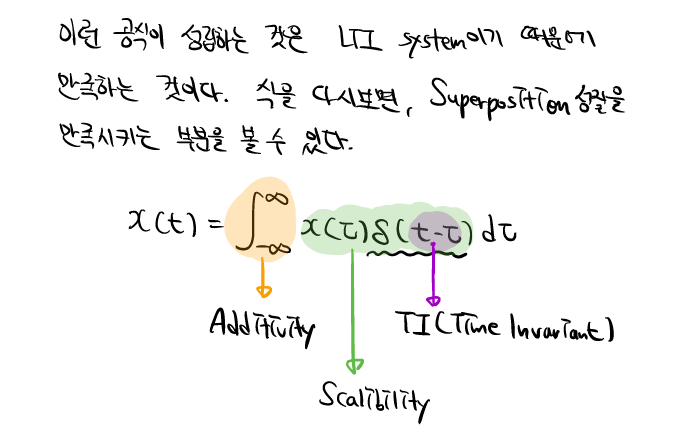 이런 공식이 성립하는 것은 LTI system이기 때문에
만족하는 것이다. 식을 다시보면, Superposition 성질을
만족시키는 부분을 볼 수 있다.
x(t) = ∫_{-∞}^{∞} x(τ) δ(t-τ) dτ
Additivity
TI(Time Invariant)
Scalibility